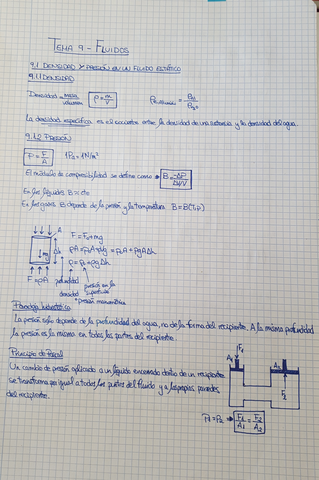 TEMA 9 - FLUIDOS
9.1 DENSIDAD Y PRESIÓN EN UN FLUIDO ESTÁTICO
9.1.1 DENSIDAD
Densidad = masa/volumen ρ = m/V
La densidad específica es el cociente entre la densidad de una sustancia y la densidad del agua.
9.1.2 PRESIÓN
P = F/A 1Pa = 1N/m²
El módulo de compresibilidad se define como B = -ΔP/(ΔV/V)
En los líquidos B = cte
En los gases B depende de la presión y la temperatura B = B(T,P)
A
F = F₀ + mg
mg Δh
ρ = ρ₀ + ρgΔh
F = PA profundidad
densidad presión en la superficie
* presión manométrica
Paradoja hidrostática
La presión sólo depende de la profundidad del agua, no de la forma del recipiente. A la misma profundidad
la presión es la misma en todas las partes del recipiente.
Principio de Pascal
Un cambio de presión aplicado a un líquido encerrado dentro de un recipiente
se transforma por igual a todos los puntos del fluido y a las propias paredes
del recipiente.
F₁
A₁ A₂
F₂
P₁ = P₂ → F₁/A₁ = F₂/A₂